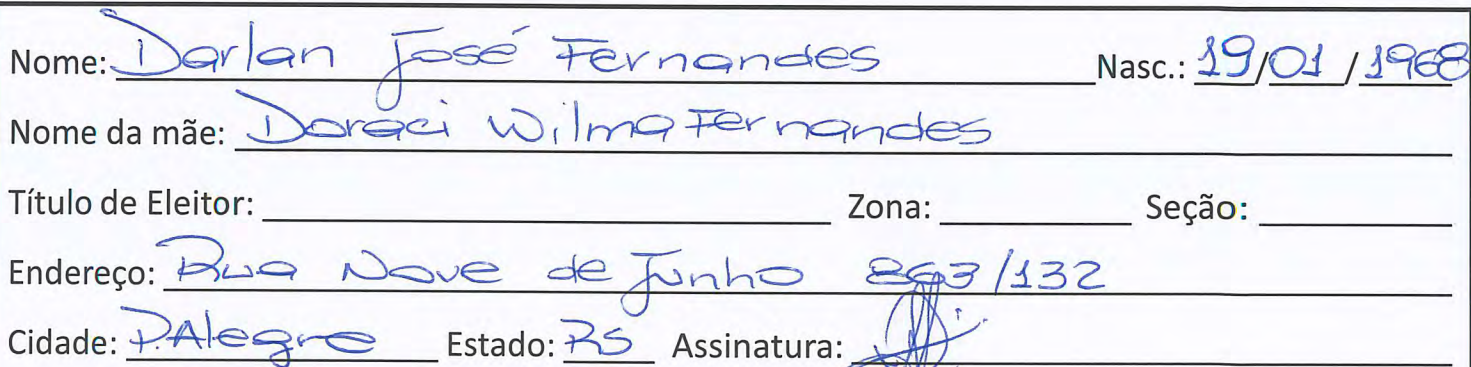 Nome: Darlan José Fernandes Nasc.: 19/01/1968
Nome da mãe: Doraci Wilma Fernandes
Título de Eleitor: Zona: Seção:
Endereço: Rua Nove de Junho /132
Cidade: P.Alegre Estado: RS Assinatura: